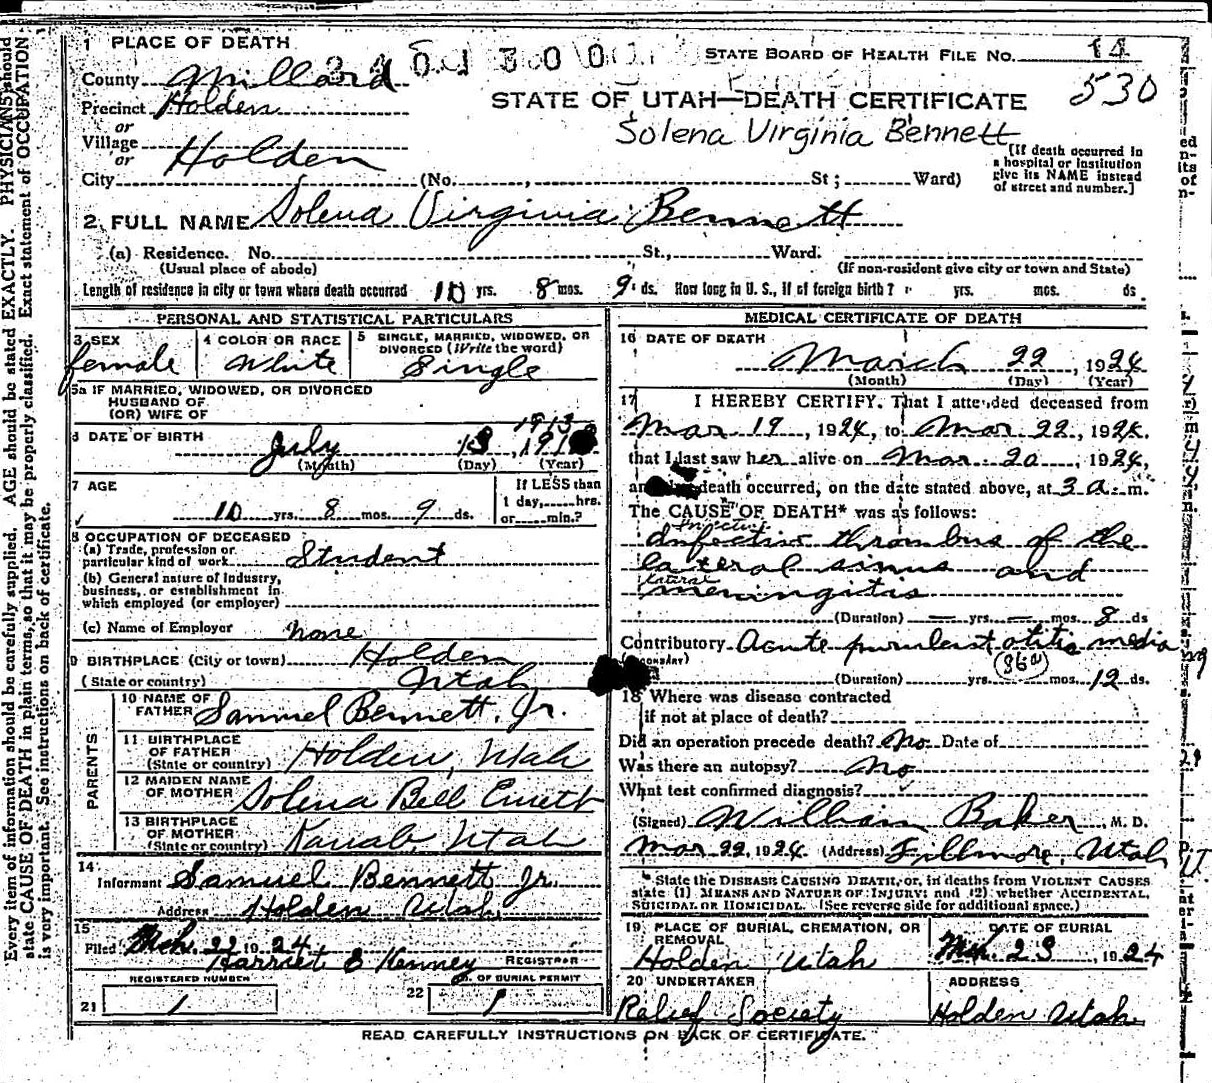 1 PLACE OF DEATH
3401300
STATE BOARD OF HEALTH FILE NO. 14
County Millard
530
Precinct Holden
STATE OF UTAH—DEATH CERTIFICATE
or
Solena Virginia Bennett
Village
or
Holden
[If death occurred in a hospital or institution give its NAME instead of street and number.]
City (No. , St; Ward)
2 FULL NAME Solena Virginia Bennett
(a) Residence. No. St., Ward.
(Usual place of abode) (If non-resident give city or town and State)
Length of residence in city or town where death occurred 10 yrs. 8 mos. 9 ds. How long in U. S., if of foreign birth? yrs. mos. ds.
PERSONAL AND STATISTICAL PARTICULARS
3 SEX
female
4 COLOR OR RACE
White
5 SINGLE, MARRIED, WIDOWED, OR DIVORCED (Write the word)
Single
5a IF MARRIED, WIDOWED, OR DIVORCED
HUSBAND OF
(OR) WIFE OF
1913
6 DATE OF BIRTH July 13, 191
(Month) (Day) (Year)
7 AGE
10 yrs. 8 mos. 9 ds.
If LESS than
1 day, hrs.
or min.?
8 OCCUPATION OF DECEASED
(a) Trade, profession or
particular kind of work Student
(b) General nature of industry,
business, or establishment in
which employed (or employer)
(c) Name of Employer none
9 BIRTHPLACE (City or town) Holden
(State or country) Utah
PARENTS
10 NAME OF
FATHER Samuel Bennett, Jr.
11 BIRTHPLACE
OF FATHER
(State or country) Holden, Utah
12 MAIDEN NAME
OF MOTHER Solena Bell Emett
13 BIRTHPLACE
OF MOTHER
(State or country) Kanab, Utah
14
Informant Samuel Bennett Jr.
Address Holden Utah
15
Filed Mch. 22 1924
Harriet E Kenney REGISTRAR
REGISTERED NUMBER
NO. OF BURIAL PERMIT
21 1
22 1
MEDICAL CERTIFICATE OF DEATH
16 DATE OF DEATH
March 22, 1924
(Month) (Day) (Year)
17 I HEREBY CERTIFY. That I attended deceased from
Mar 19, 1924, to Mar 22, 1924.
that I last saw her alive on Mar 20, 1924,
death occurred, on the date stated above, at 3 a. m.
The CAUSE OF DEATH* was as follows:
Infective
Infective thrombus of the
lateral sinus and
lateral
meningitis
(Duration) — yrs. — mos. 8 ds
Contributory Acute purulent otitis media
(86a)
(Duration) yrs. mos. 12 ds.
18 Where was disease contracted
if not at place of death?
Did an operation precede death? No Date of
Was there an autopsy? No
What test confirmed diagnosis?
(Signed) William Baker, M. D.
Mar 22, 1924. (Address) Fillmore, Utah
* State the DISEASE CAUSING DEATH, or, in deaths from VIOLENT CAUSES
state (1) MEANS AND NATURE OF INJURY; and (2) whether ACCIDENTAL,
SUICIDAL OR HOMICIDAL. (See reverse side for additional space.)
19 PLACE OF BURIAL, CREMATION, OR
REMOVAL
Holden, Utah
DATE OF BURIAL
Mch. 23, 1924
20 UNDERTAKER
Relief Society
ADDRESS
Holden Utah
READ CAREFULLY INSTRUCTIONS ON BACK OF CERTIFICATE.
Every item of information should be carefully supplied. AGE should be stated EXACTLY. PHYSICIANS should
state CAUSE OF DEATH in plain terms, so that it may be properly classified. Exact statement of OCCUPATION
is very important. See instructions on back of certificate.